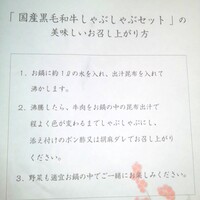 「国産黒毛和牛しゃぶしゃぶセット」の
美味しいお召し上がり方
1、お鍋に約1ℓの水を入れ、出汁昆布を入れて
沸かします。
2、沸騰したら、牛肉をお鍋の中の昆布出汁で
程よく色が変わるまでしゃぶしゃぶにし、
添え付けのポン酢又は胡麻ダレでお召し上がり
ください。
3、野菜も適宜お鍋の中でご一緒にお楽しみください。